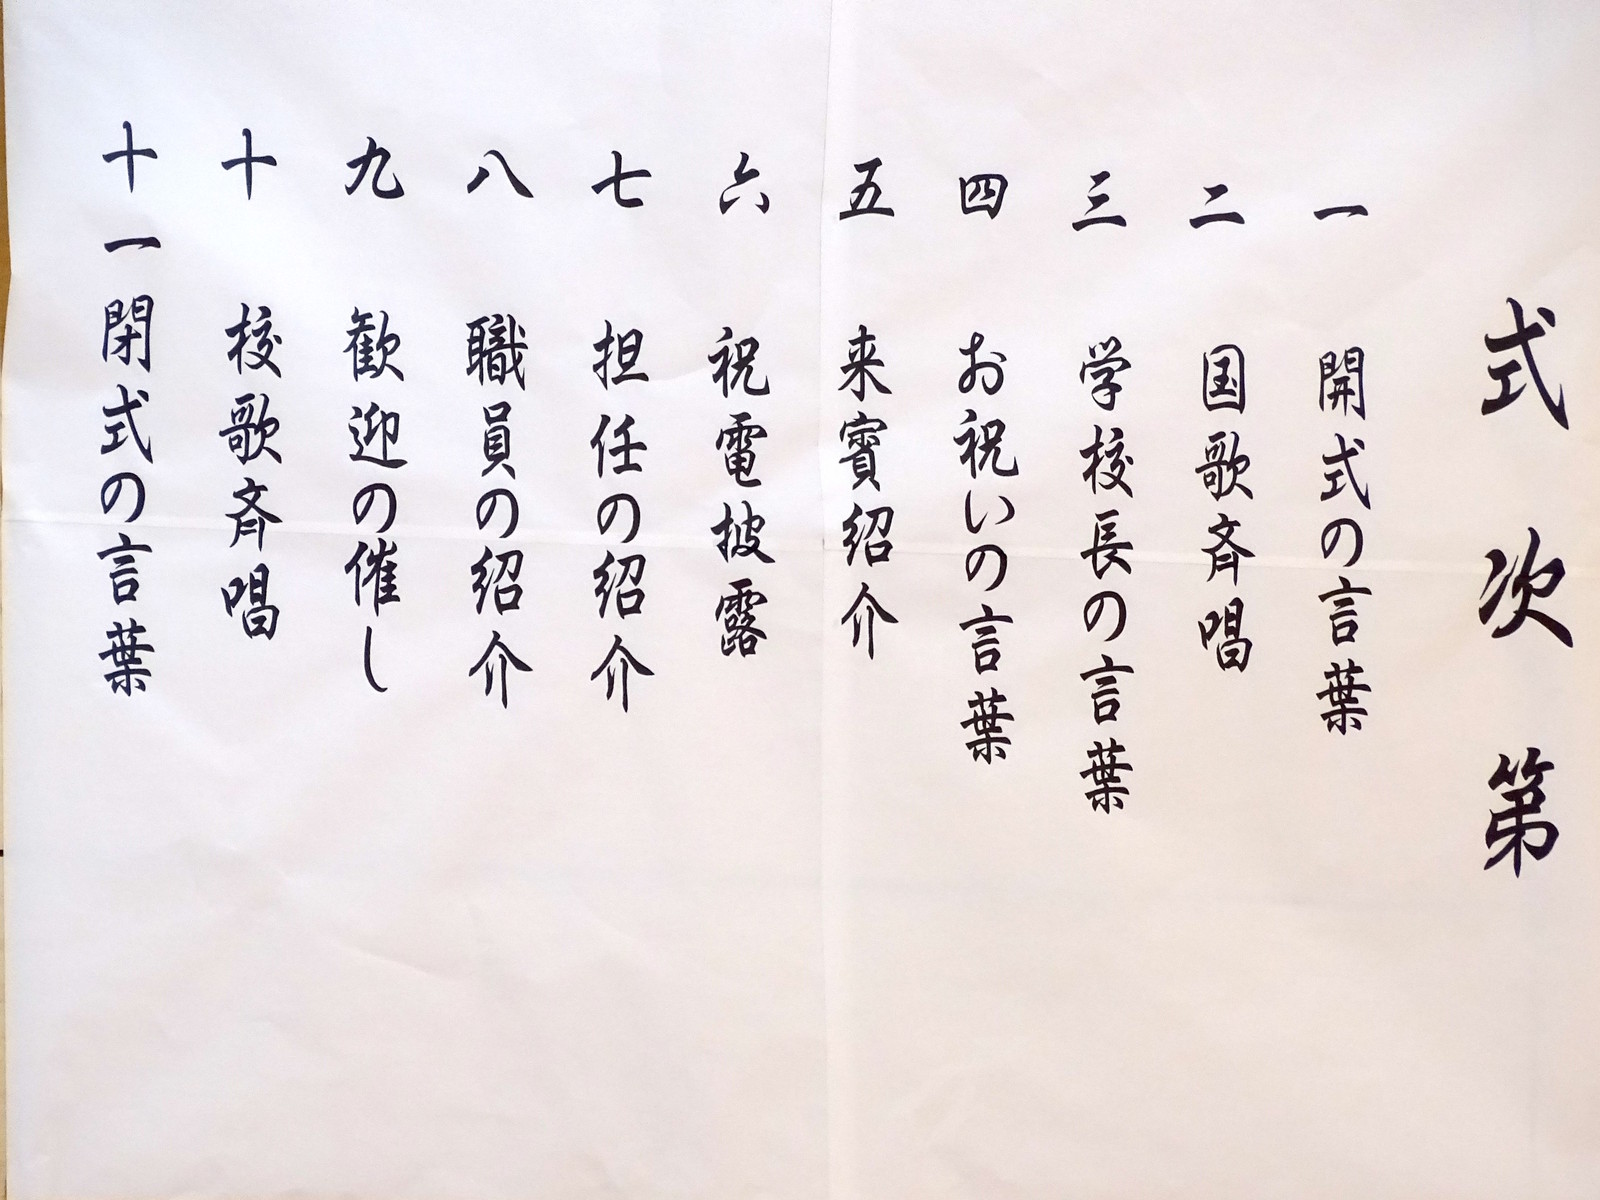 式次第
一 開式の言葉
二 国歌斉唱
三 学校長の言葉
四 お祝いの言葉
五 来賓紹介
六 祝電披露
七 担任の紹介
八 職員の紹介
九 歓迎の催し
十 校歌斉唱
十一 閉式の言葉